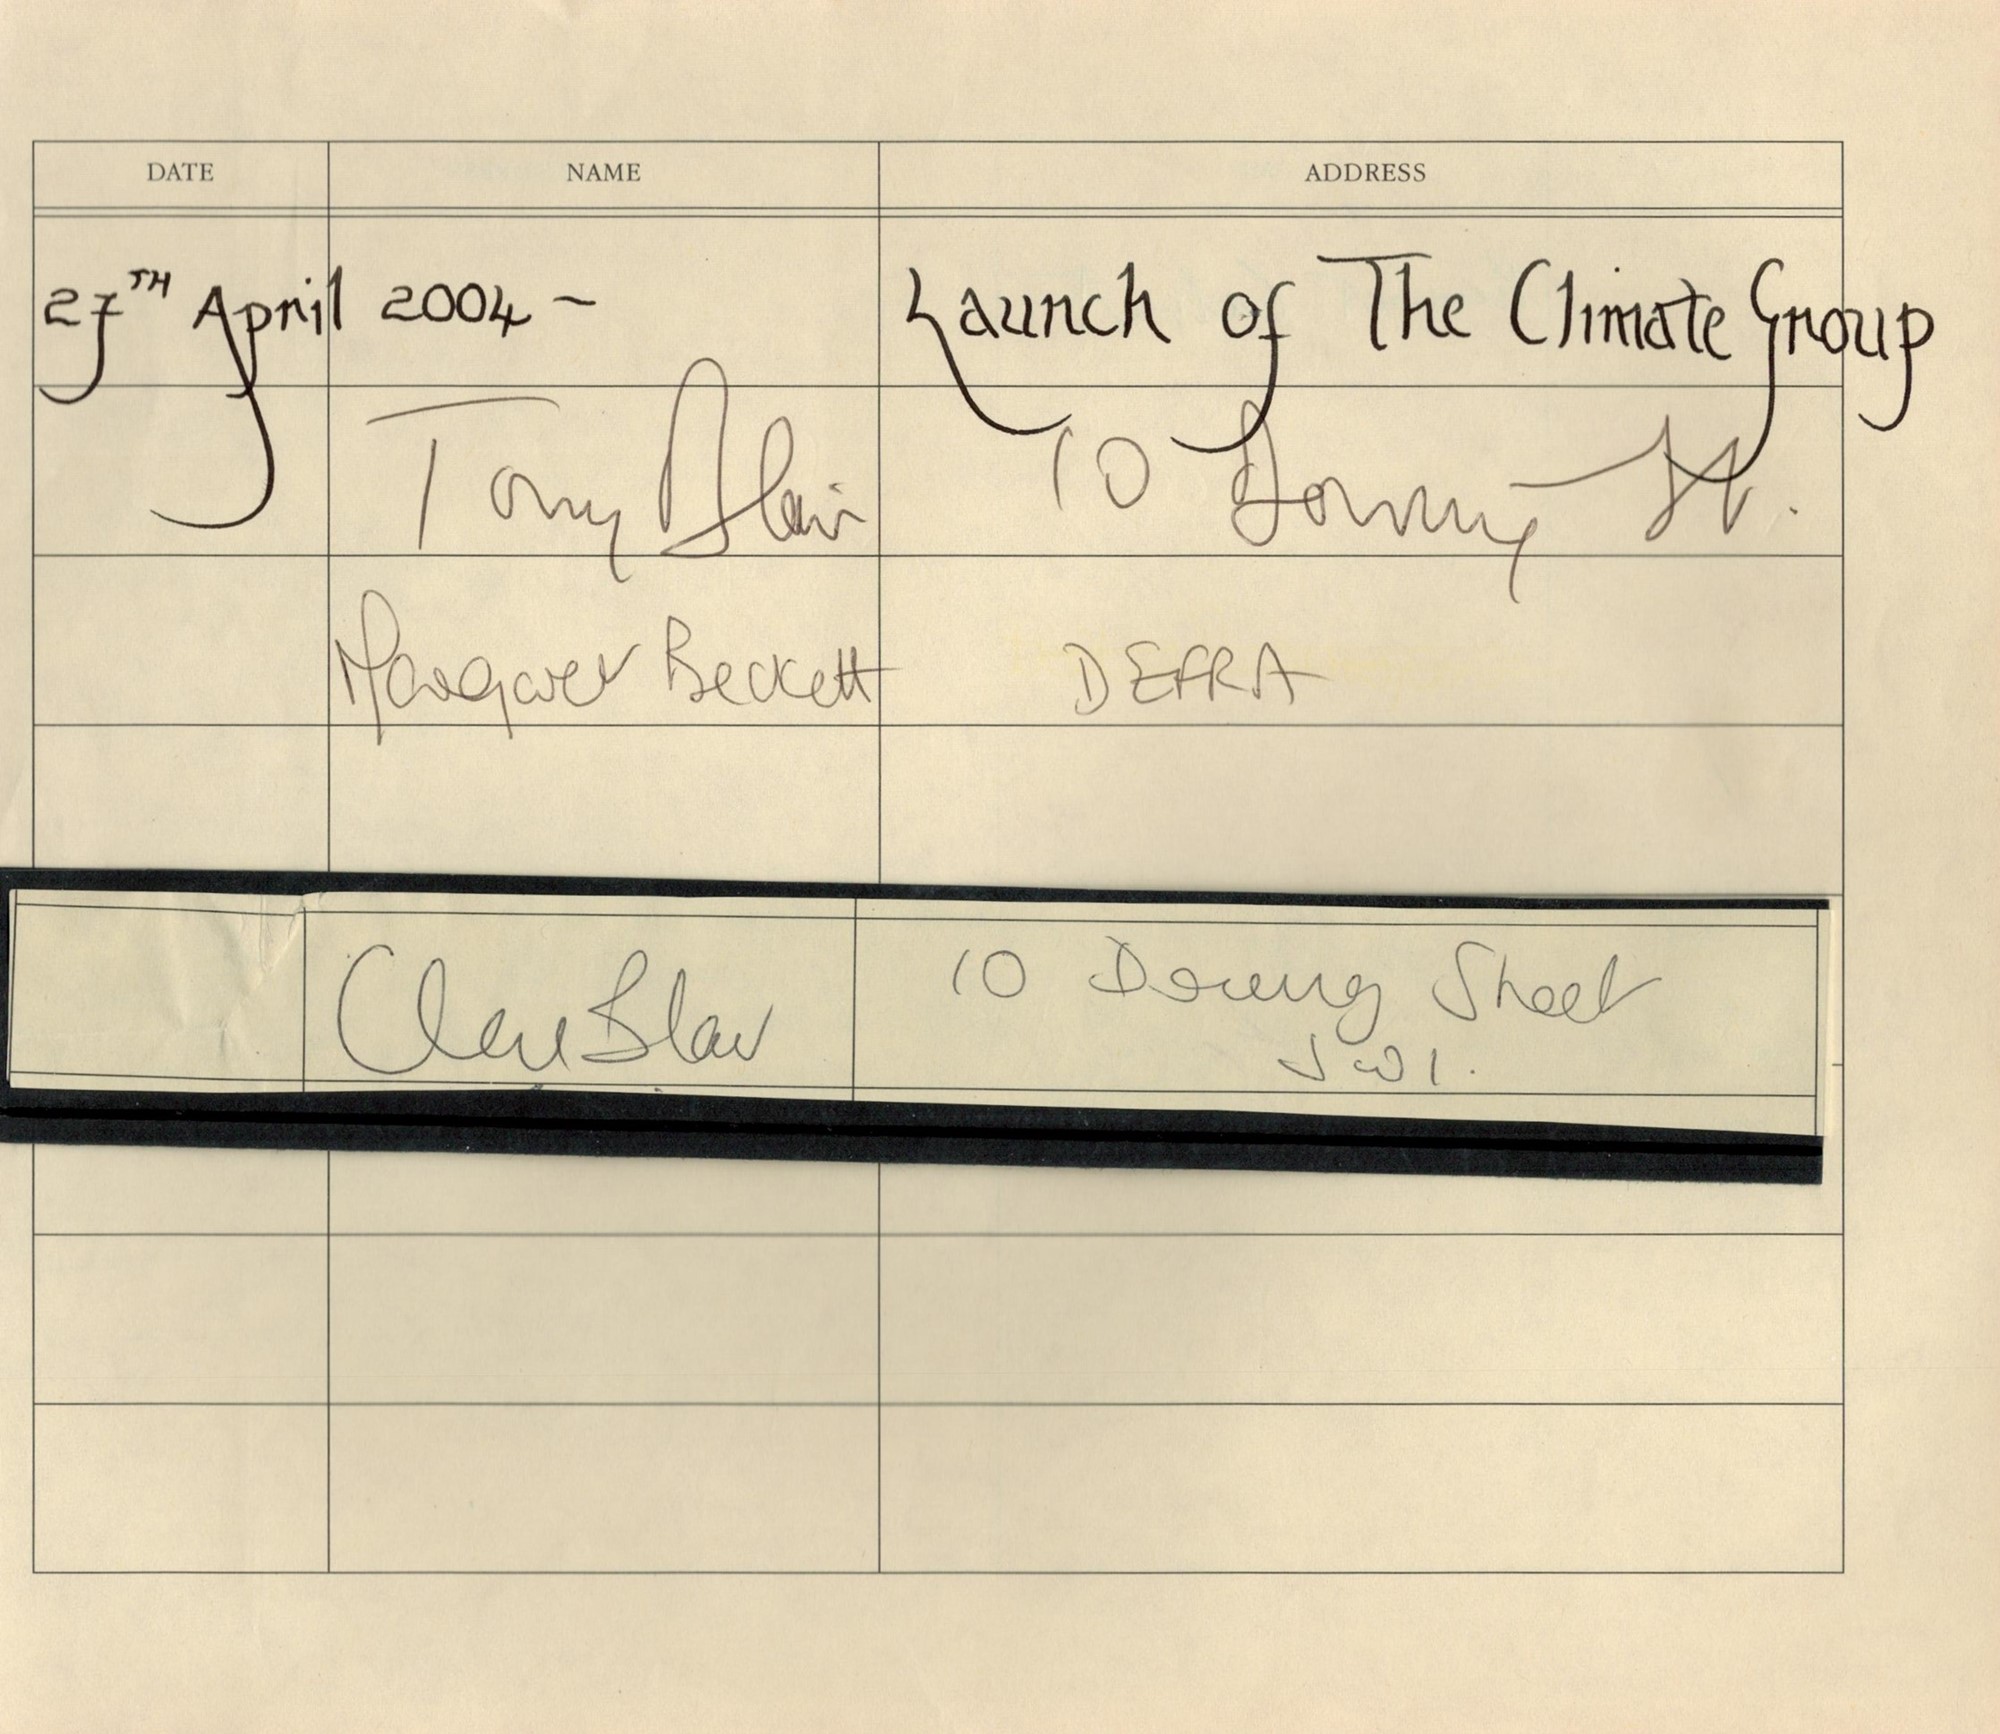 DATE NAME ADDRESS
27TH April 2004 ~ Launch of The Climate Group
Tony Blair 10 Downing St.
Margaret Beckett DEFRA
Cherie Blair 10 Downing Street
SW1.